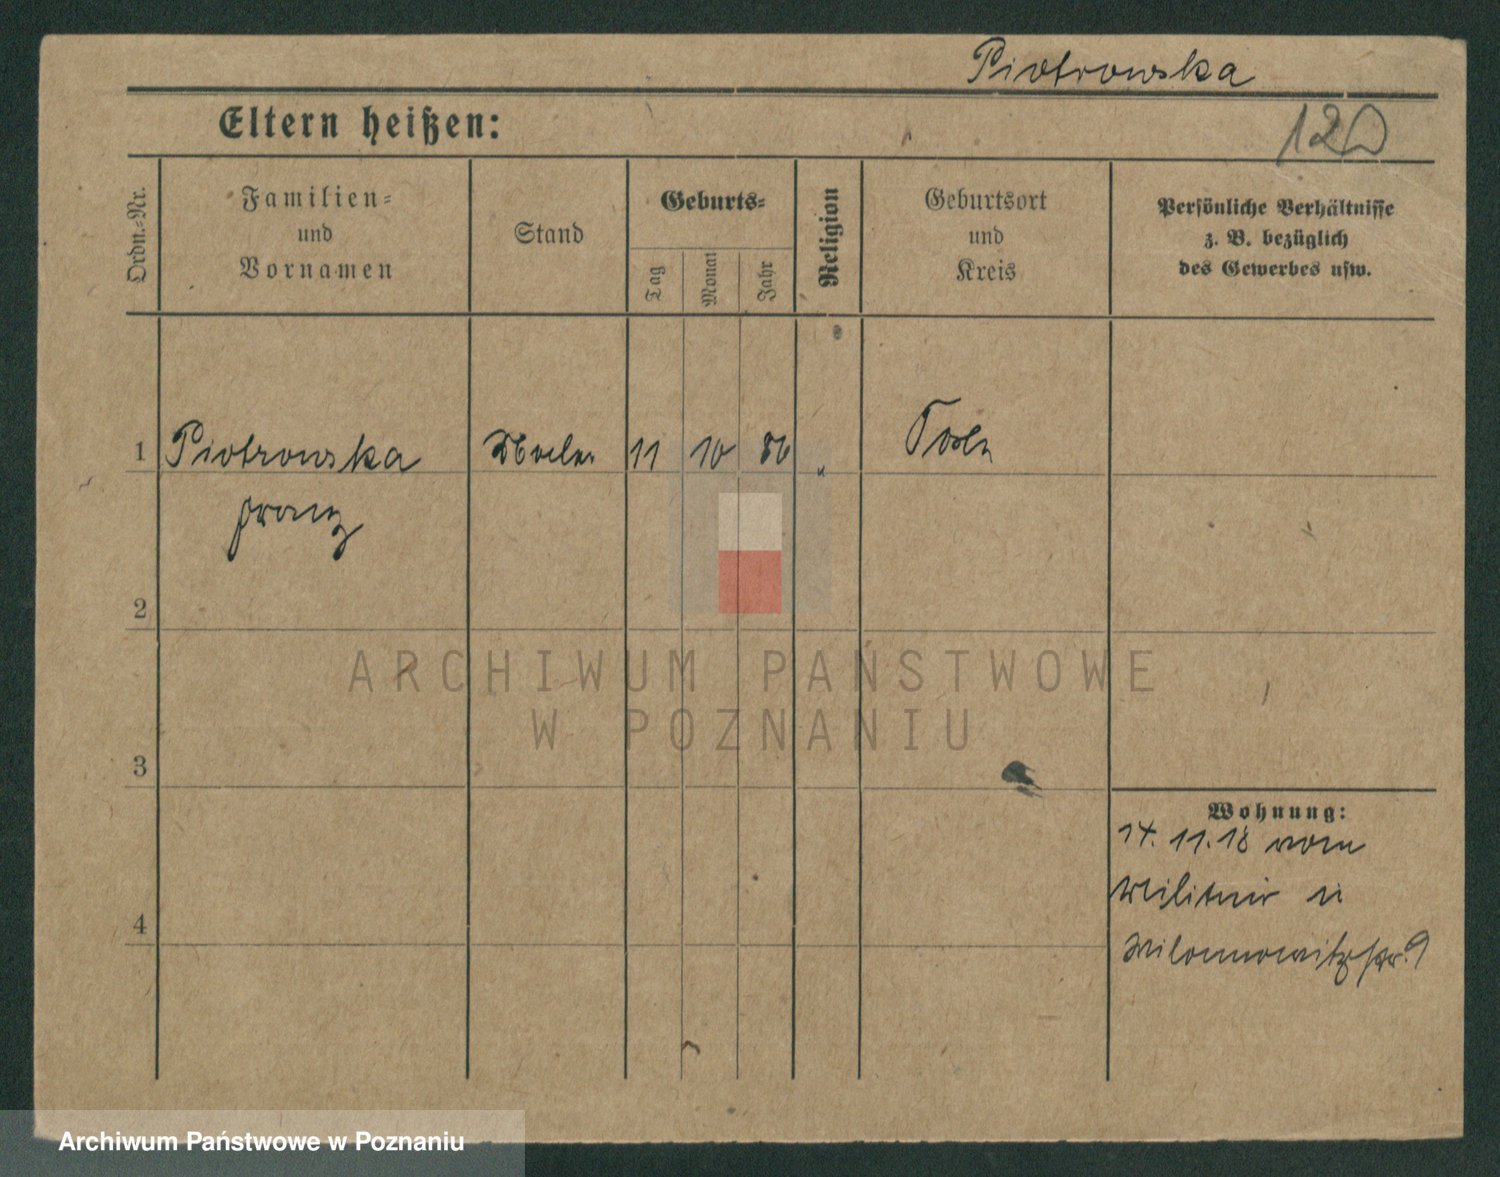 Piotrowska
Eltern heißen:
120
Ordn.-Nr.
Familien-
und
Vornamen
Stand
Geburts-
Tag
Monat
Jahr
Religion
Geburtsort
und
Kreis
Persönliche Verhältnisse
z. B. bezüglich
des Gewerbes usw.
1 Piotrowska Maler 11 10 86 "
Franz
2
ARCHIWUM PAŃSTWOWE
W POZNANIU
3
Wohnung:
14. 11. 18 vom
Militär n
4
Archiwum Państwowe w Poznaniu